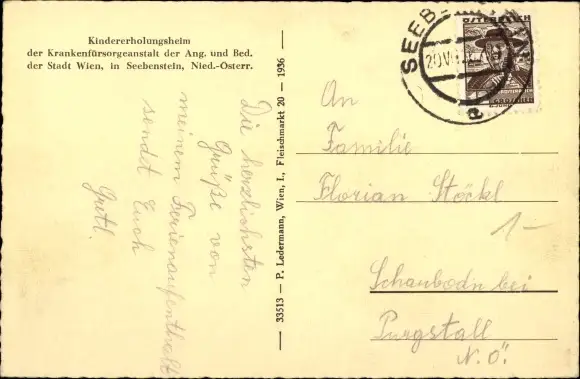 Kindererholungsheim
der Krankenfürsorgeanstalt der Ang. und Bed.
der Stadt Wien, in Seebenstein, Nied.-Österr.
Die herzlichsten
Grüße von
meinem Ferienaufenthalt
sendet Euch
Gretl.
33513 — P. Ledermann, Wien, I., Fleischmarkt 20 — 1936
ÖSTERREICH
GROSCHEN
An
Familie
Florian Stöckl
1-
Schaubodn bei
Purgstall
N.Ö.